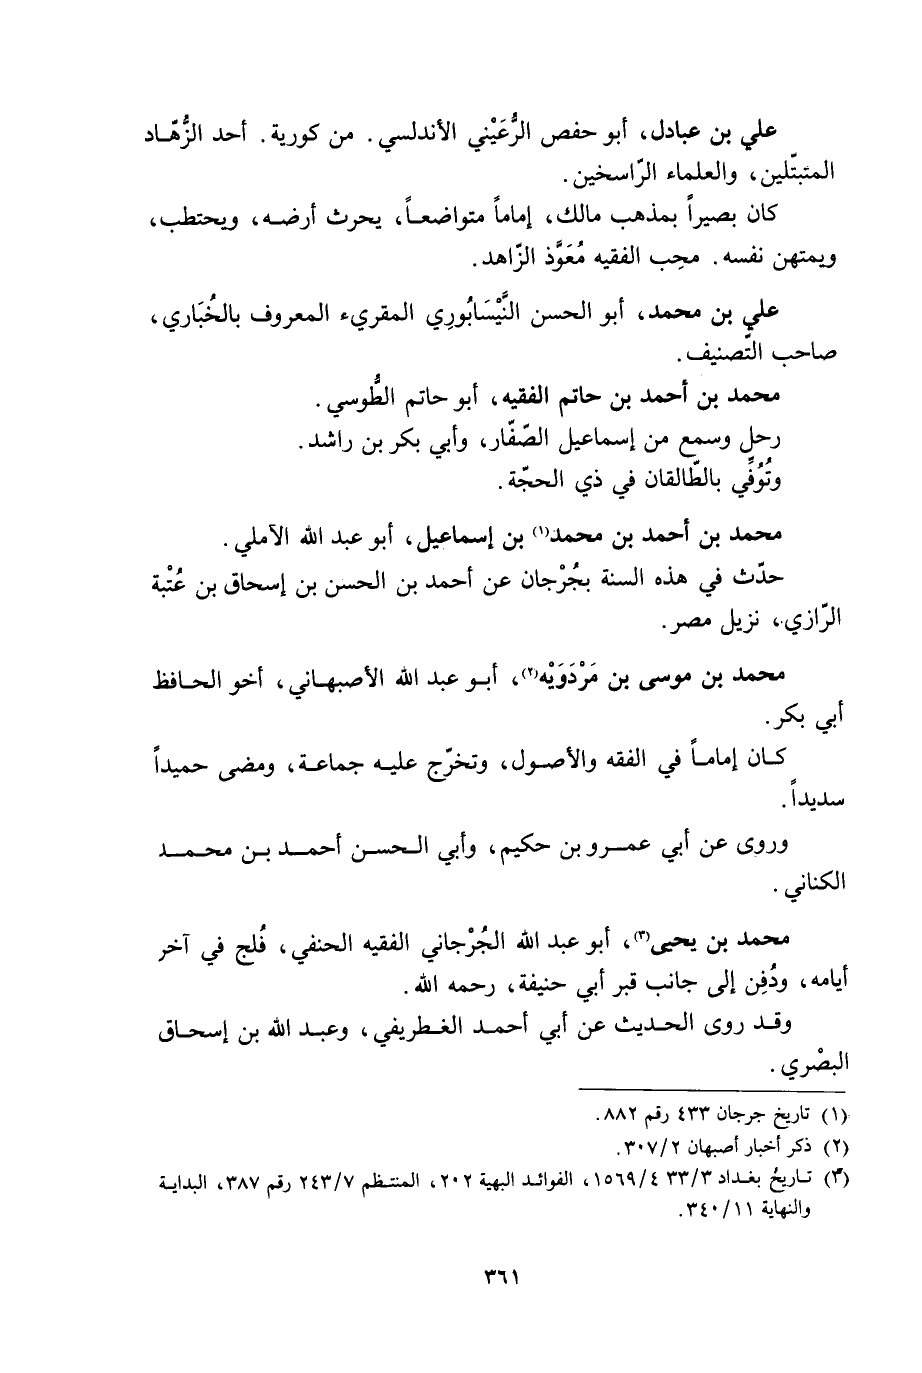 علي بن عبادل، أبو حفص الرُّعَيْني الأندلسي. من كورية. أحد الزُّهّاد
المتبتّلين، والعلماء الرّاسخين.
كان بصيراً بمذهب مالك، إماماً متواضعاً، يحرث أرضه، ويحتطب،
ويمتهن نفسه. محِب الفقيه مُعَوَّذ الزّاهد.
علي بن محمد، أبو الحسن النَّيْسَابُورِي المقريء المعروف بالخُبَاري،
صاحب التّصنيف.
محمد بن أحمد بن حاتم الفقيه، أبو حاتم الطُّوسي.
رحل وسمع من إسماعيل الصّفّار، وأبي بكر بن راشد.
وتُوُفِّي بالطّالقان في ذي الحجّة.
محمد بن أحمد بن محمد(١) بن إسماعيل، أبو عبد الله الآملي.
حدّث في هذه السنة بجُرْجان عن أحمد بن الحسن بن إسحاق بن عُتْبة
الرّازي، نزيل مصر.
محمد بن موسى بن مَرْدَوَيْه(٢)، أبو عبد الله الأصبهاني، أخو الحافظ
أبي بكر.
كان إماماً في الفقه والأصول، وتخرّج عليه جماعة، ومضى حميداً
سديداً.
وروى عن أبي عمرو بن حكيم، وأبي الحسن أحمد بن محمد
الكناني.
محمد بن يحيى(٣)، أبو عبد الله الجُرْجاني الفقيه الحنفي، فُلج في آخر
أيامه، ودُفِن إلى جانب قبر أبي حنيفة، رحمه الله.
وقد روى الحديث عن أبي أحمد الغطريفي، وعبد الله بن إسحاق
البصْري.
(١) تاريخ جرجان ٤٣٣ رقم ٨٨٢.
(٢) ذكر أخبار أصبهان ٣٠٧/٢.
(٣) تاريخُ بغداد ٣٣/٣ ١٥٦٩/٤، الفوائد البهية ٢٠٢، المنتظم ٢٤٣/٧ رقم ٣٨٧، البداية
والنهاية ٣٤٠/١١.
٣٦١